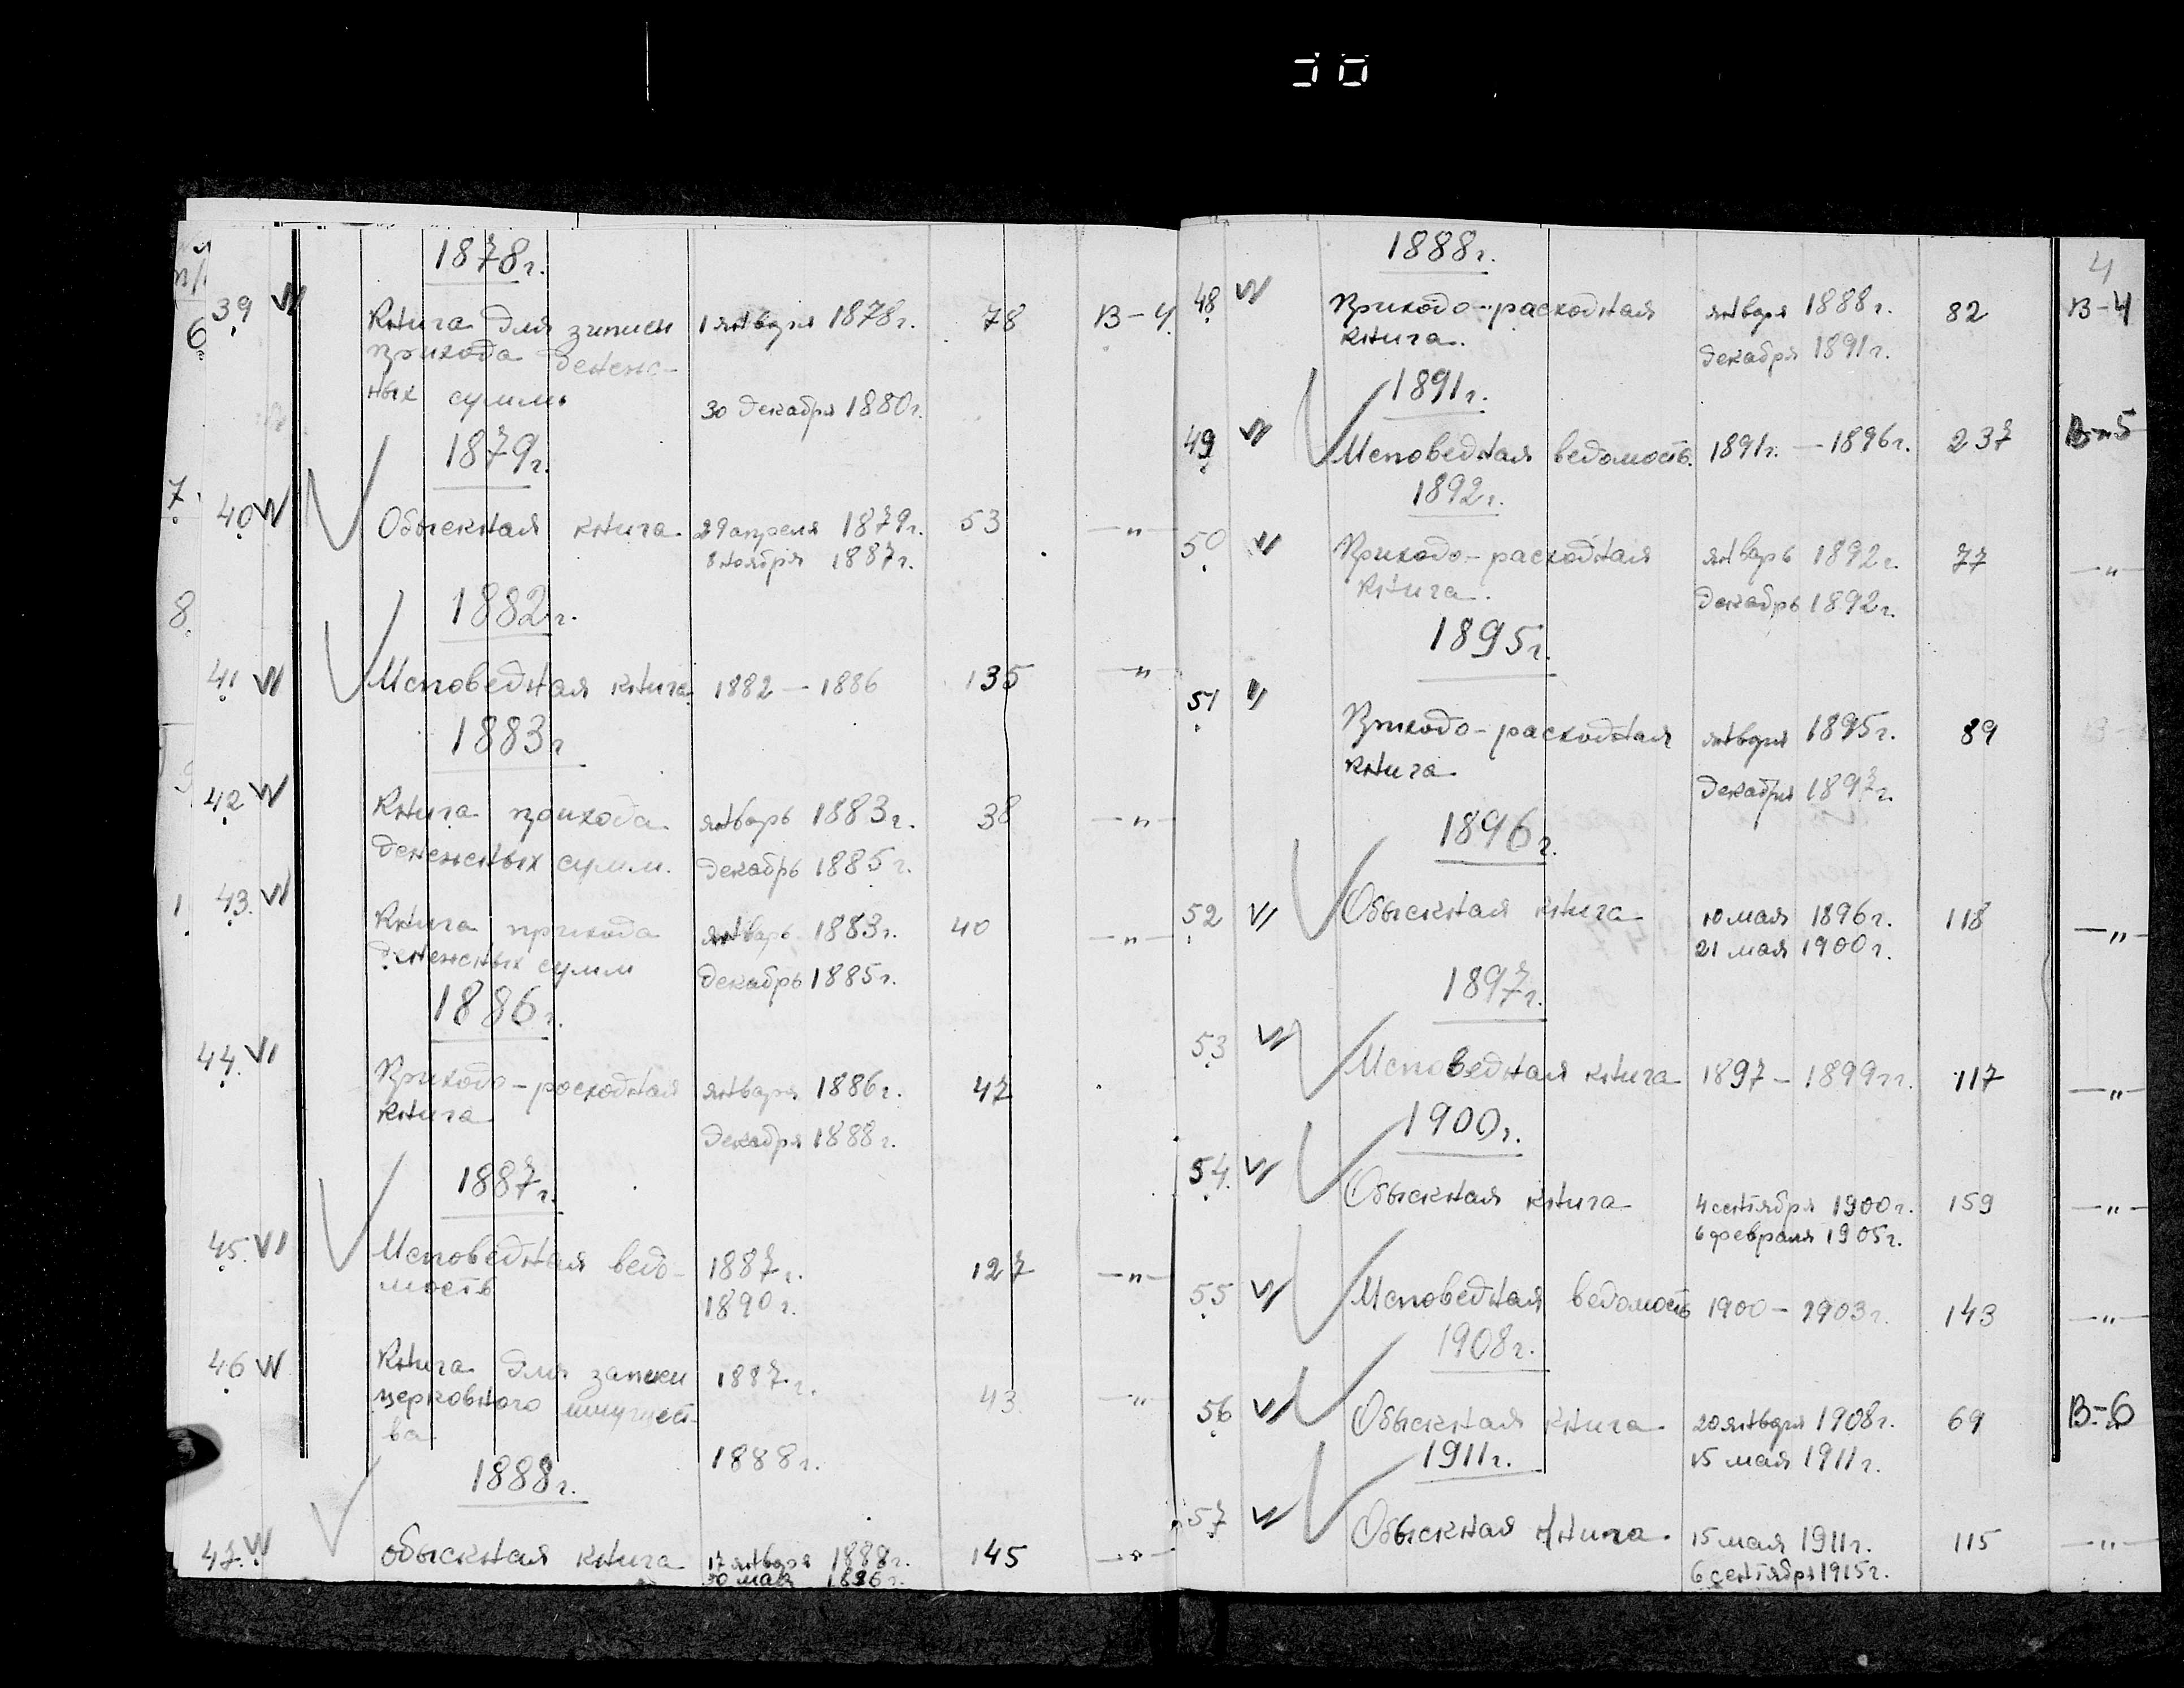 1878г.
39 Книга для записи 1 января 1878г. 78 В-4
6 прихода денеж-
ных сумм. 30 декабря 1880г.
1879г.
7. 40 Обыскная книга 29 апреля 1879г. 53 —"—
8 ноября 1887г.
8. 1882г.
41 Исповедная книга 1882 — 1886 135 —"—
1883г
42 Книга прихода январь 1883г. 38 —"—
денежных сумм. декабрь 1885г.
43. Книга прихода январь 1883г. 40 —"—
денежных сумм декабрь 1885г.
1886г.
44. Приходо-расходная января 1886г. 47
книга декабря 1888г.
1887г.
45. Исповедная ведо- 1887г. 127 —"—
мость 1890г.
46 Книга для записи 1887г. 43 —"—
церковного имущест-
ва 1888г.
1888г.
47. Обыскная книга 17 января 1888г. 145 —"—
30 мая 1896г.
4
1888г.
48 Приходо-расходная января 1888г. 82 В-4
книга. декабря 1891г.
1891г.
49 Исповедная ведомость. 1891г. — 1896г. 237 В-5
1892г.
50 Приходо-расходная январь 1892г. 77 —"—
книга. декабрь 1892г.
1895г.
51 Приходо-расходная января 1895г. 89
книга декабря 1897г.
1896г.
52 Обыскная книга 10 мая 1896г. 118 —"—
21 мая 1900г.
1897г.
53 Исповедная книга 1897 — 1899гг. 117 —"—
1900г.
54. Обыскная книга 4 сентября 1900г. 159 —"—
6 февраля 1905г.
55 Исповедная ведомость 1900 — 1903г. 143 —"—
1908г.
56 Обыскная книга 20 января 1908г. 69 В-6
15 мая 1911г.
1911г.
57 Обыскная книга. 15 мая 1911г. 115 —"—
6 сентября 1915г.